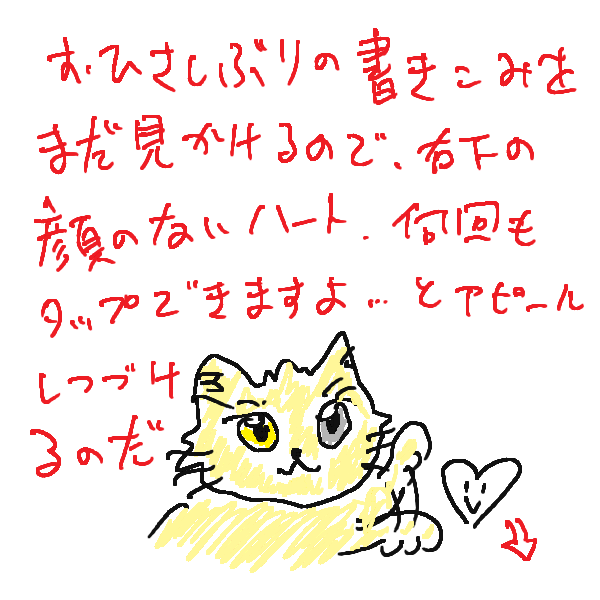 おひさしぶりの書きこみを
まだ見かけるので、右下の
顔のないハート、何回も
タップできますよ…とアピール
しつづけ
るのだ